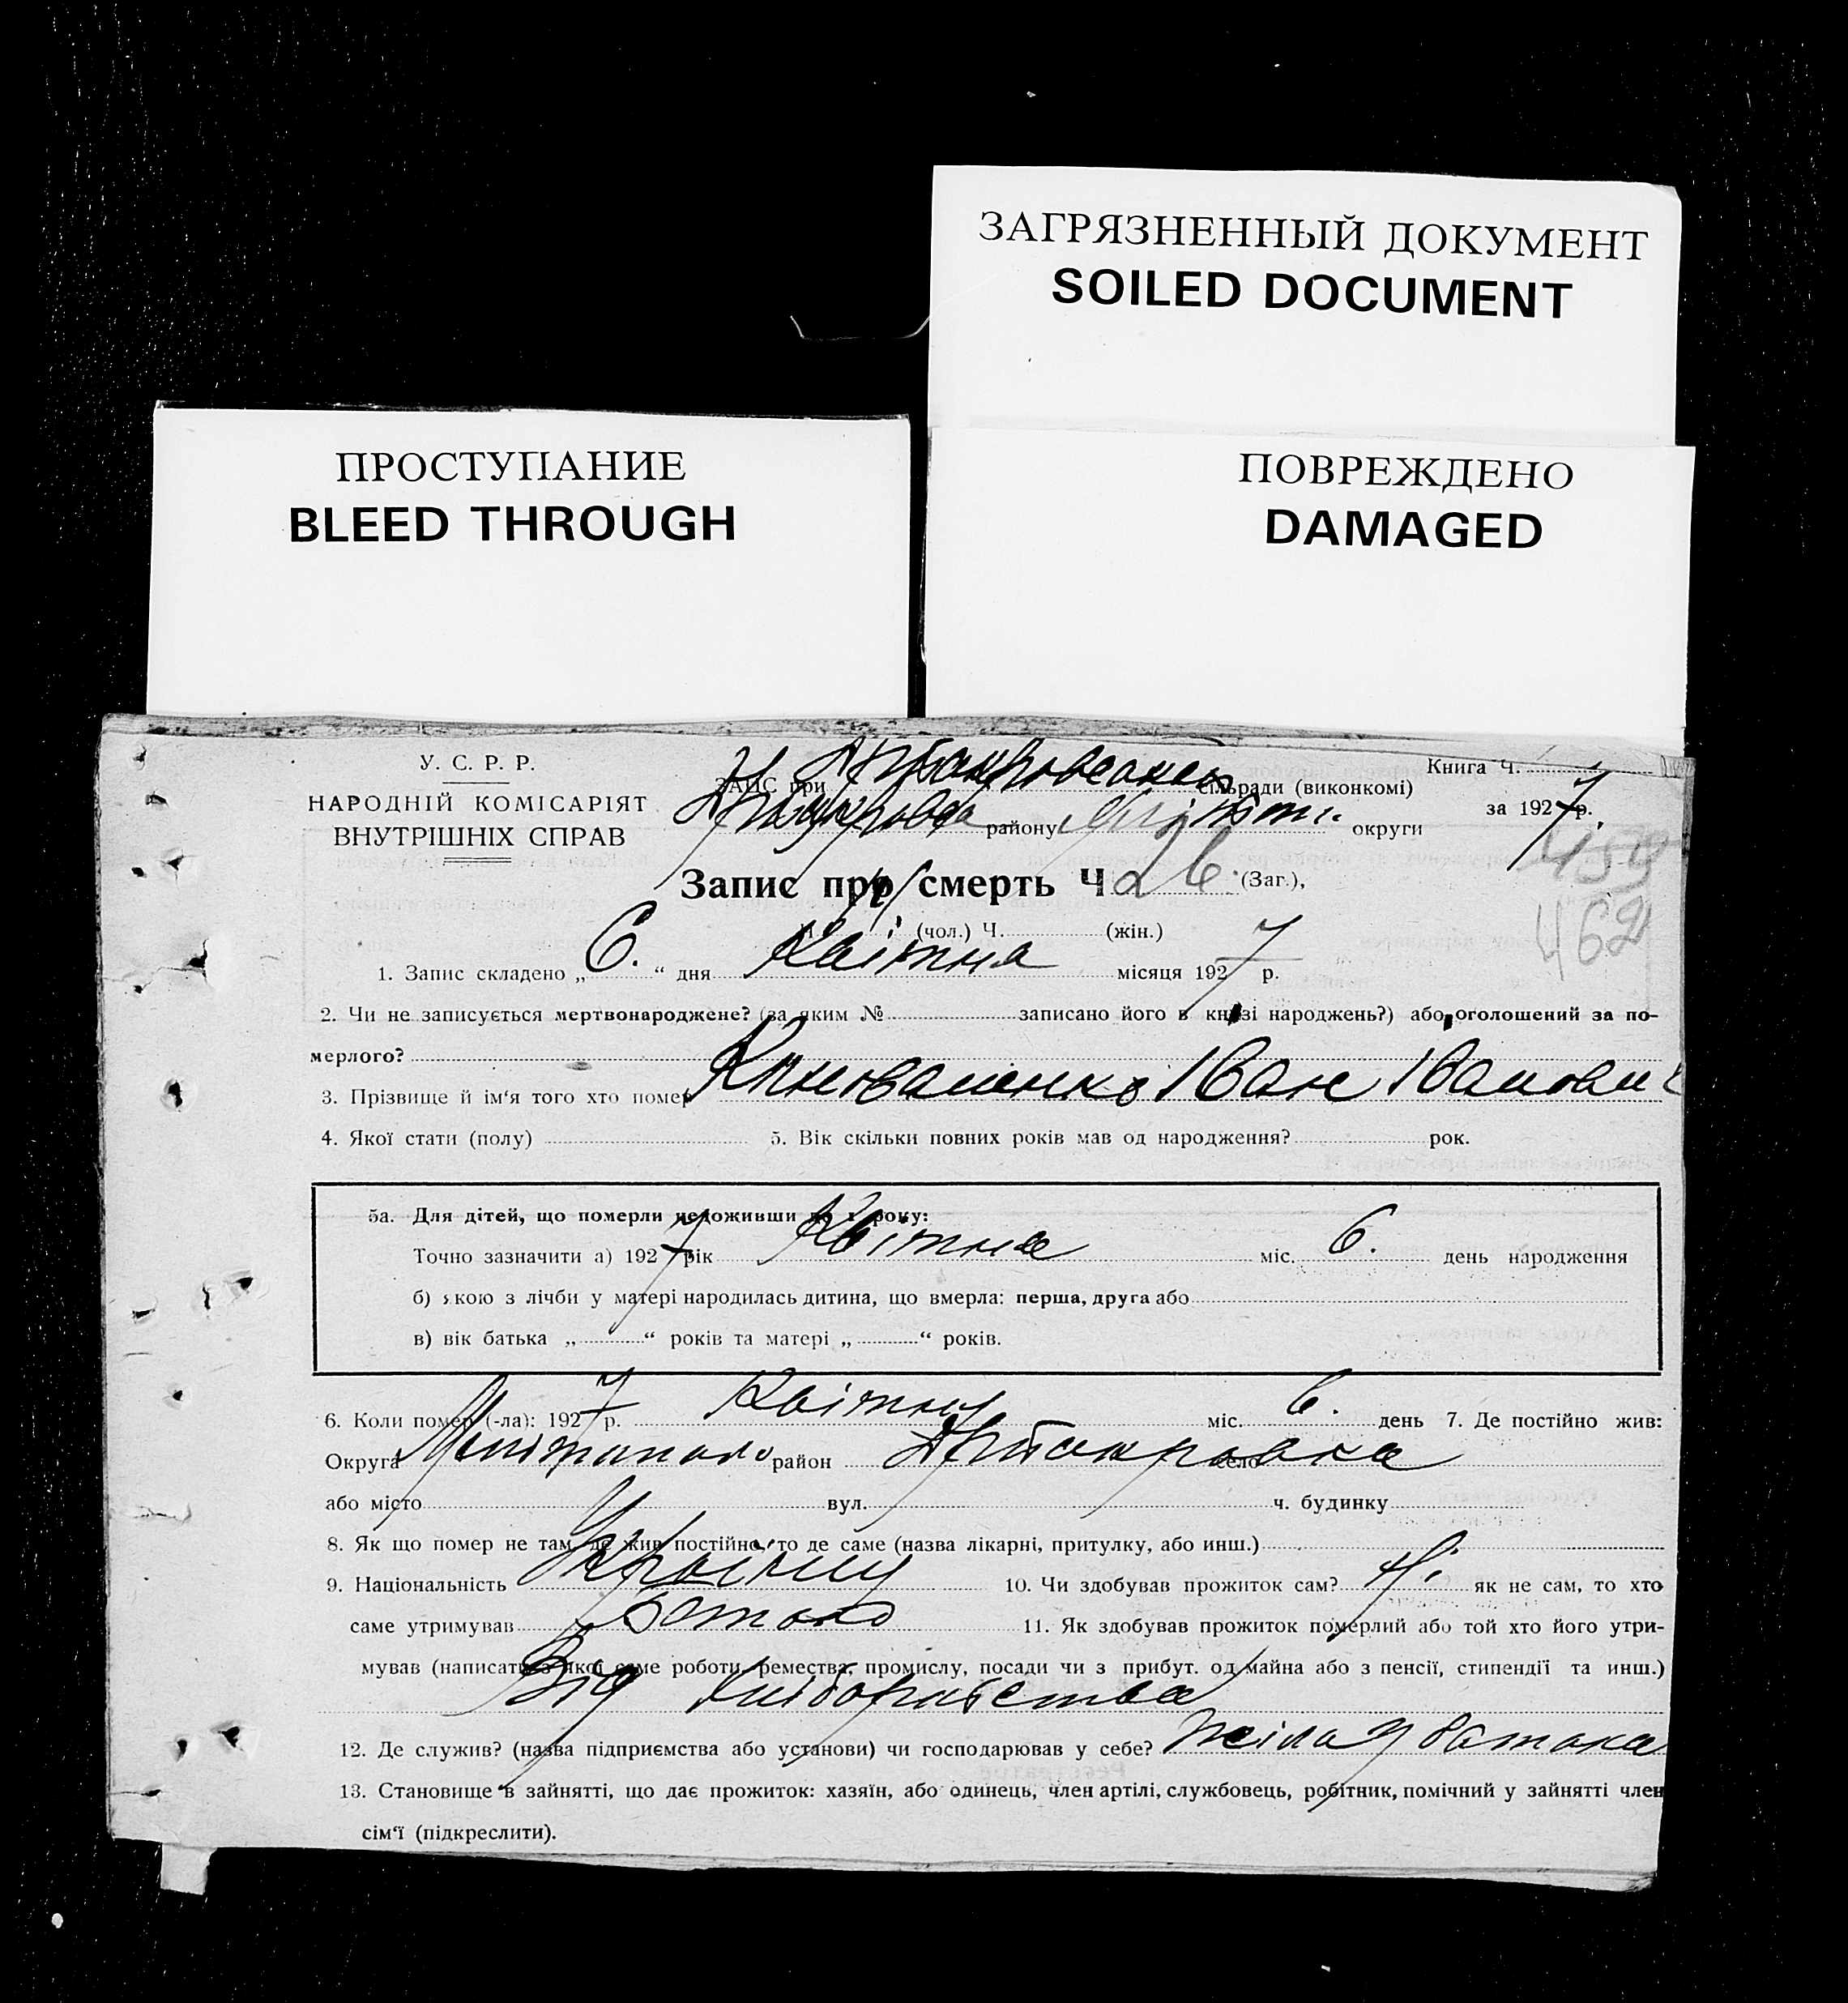 ЗАГРЯЗНЕННЫЙ ДОКУМЕНТ
SOILED DOCUMENT
ПРОСТУПАНИЕ
BLEED THROUGH
ПОВРЕЖДЕНО
DAMAGED
У. С. Р. Р.
НАРОДНІЙ КОМІСАРІЯТ
ВНУТРІШНІХ СПРАВ
ЗАГС при сільради (виконкомі)
району округи
Книга Ч.
за 1927 р.
459
462
Запис про смерть Ч 26. (Заг.),
(чол.) Ч. (жін.)
1. Запис складено „6.“ дня Квітня місяця 1927 р.
2. Чи не записується мертвонароджене? (за яким № записано його в книзі народжень?) або оголошений за по-
мерлого?
3. Прізвище й ім'я того хто помер Іван Іванович
4. Якої стати (полу) 5. Вік скільки повних років мав од народження? рок.
5а. Для дітей, що померли недоживши до 1 року:
Точно зазначити а) 1927 рік Квітня міс. 6. день народження
б) якою з лічби у матері народилась дитина, що вмерла: перша, друга або
в) вік батька „ “ років та матері „ “ років.
6. Коли помер (-ла): 1927 р. Квітня міс. 6. день 7. Де постійно жив:
Округа район село
або місто вул. ч. будинку
8. Як що помер не там, де жив постійно, то де саме (назва лікарні, притулку, або инш.)
9. Національність 10. Чи здобував прожиток сам? як не сам, то хто
саме утримував 11. Як здобував прожиток померлий або той хто його утри-
мував (написати з якої саме роботи, ремества, промислу, посади чи з прибут. од майна або з пенсії, стипендії та инш.)
Від хліборобства
12. Де служив? (назва підприємства або установи) чи господарював у себе? у батька
13. Становище в зайнятті, що дає прожиток: хазяїн, або одинець, член артілі, службовець, робітник, помічний у зайнятті член
сім'ї (підкреслити).